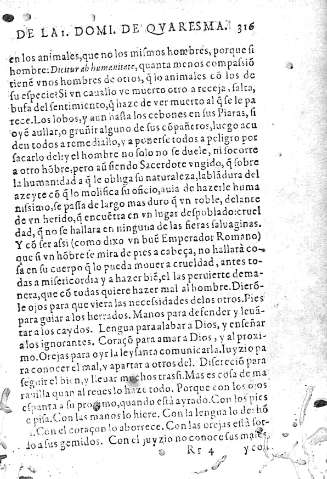 DE LA 1. DOMI. DE QVARESMA. 316
en los animales, que no los mismos hombres, porque si
hombre: Dicitur ab humanitate, quanta menos compassiõ
tienē vnos hombres de otros, q̃ lo animales cõ los de
su especie! Si vn cauallo ve muerto otro arreceja, salta,
bufa del sentimiento, q̃ haze de ver muerto al q̃ se le pa
rece. Los lobos, y aun hasta los cebones en sus Piaras, si
oyē aullar, o gruñir alguno de sus cõpañeros, luego acu
den todos a remediallo, y a ponerse todos a peligro por
sacarlo del: y el hombre no solo no se duele, ni socorre
a otro hõbre, pero aũ siendo Sacerdote vngido, q̃ sobre
la humanidad a q̃ le obliga su naturaleza, la blãdura del
azeyte cõ q̃ lo molifica su oficio, auia de hazerle huma
nissimo, se passa de largo mas duro q̃ vn roble, delante
de vn herido, q̃ encuētra en vn lugar despoblado: cruel
dad, q̃ no se hallara en ninguna de las fieras saluaginas.
Y cõ ser assi (como dixo vn buē Emperador Romano)
que si vn hõbre se mira de pies a cabeça, no hallarà co-
sa en su cuerpo q̃ lo pueda mouer a crueldad, antes to-
das a misericordia y a hazer biē, el las peruierte de ma-
nera, que cõ todas quiere hazer mal al hombre. Dierõ-
le ojos para que viera las necessidades de los otros. Pies
para guiar a los herrados. Manos para defender y leuã-
tar a los caydos. Lengua para alabar a Dios, y enseñar
a los ignorantes. Coraçõ para amar a Dios, y al proxi-
mo. Orejas para oyr la ley santa comunicarla. Iuyzio pa
ra conocer el mal, y apartar a otros del. Discreciõ para
seguir el bien, y lleuar muchos tras si. Mas es cosa de ma
rauilla quan al reues lo haze todo. Porque con los ojos
espanta a su proximo, quando està ayrado. Con los pies
pisa. Con las manos lo hiere. Con la lengua lo
Con el coraçon lo aborrece. Con las orejas està sor-
do a sus gemidos. Con el juyzio no conoce sus males,
Rr 4 y con